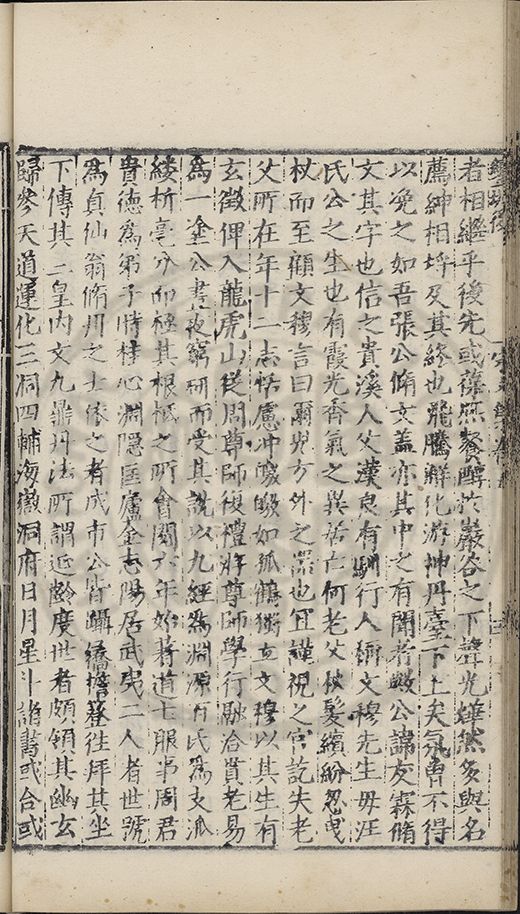 者相繼乎後先或葆煦餐醇於巖谷之下聲光燁然多與名
薦紳相埒及其終也飛騰蟬化游神丹臺下土矣氛曹不得
以凂之如吾張公脩文蓋亦其中之有聞者歟公諱友霖脩
文其字也信之貴溪人父漢良有馴行人稱文穆先生毋汪
氏公之生也有霞光香氣之異居亡何老父被髮繽紛忽曳
杖而至顧文穆言曰爾兒方外之器也宜謹視之言訖失老
父所在年十二志恬慮冲皦皦如孤鶴獨立文穆以其生有
玄徵俾入龍虎山從周尊師後禮將尊師學行融洽貫老易
為一塗公晝夜窮研而受其說以九經為淵源百氏為支派
縷析毫分而極其根柢之所會閱六年始著道士服弟周君
貴德為弟子時桂心淵隱匡廬金志陽居武夷二人者世號
為真仙翁脩丹之士依之者成市公皆躡屩擔簦往拜其坐
下傳其三皇内文九鼎丹法所謂近齡度世者頗領其幽玄
歸參天道運化三洞四輔海嶽洞府日月星斗諸書或合或